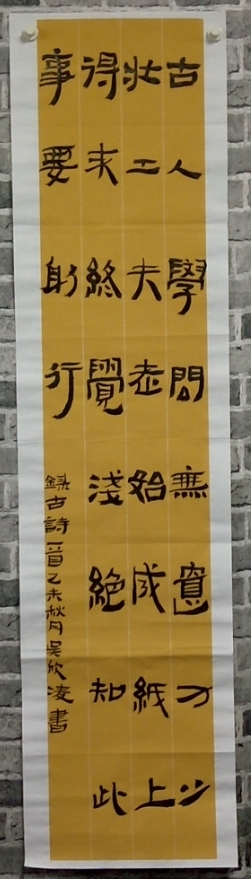 古人學問無遺力少
壯工夫老始成紙上
得來終覺淺絕知此
事要躬行
錄古詩一首乙未秋月吳欣凌書